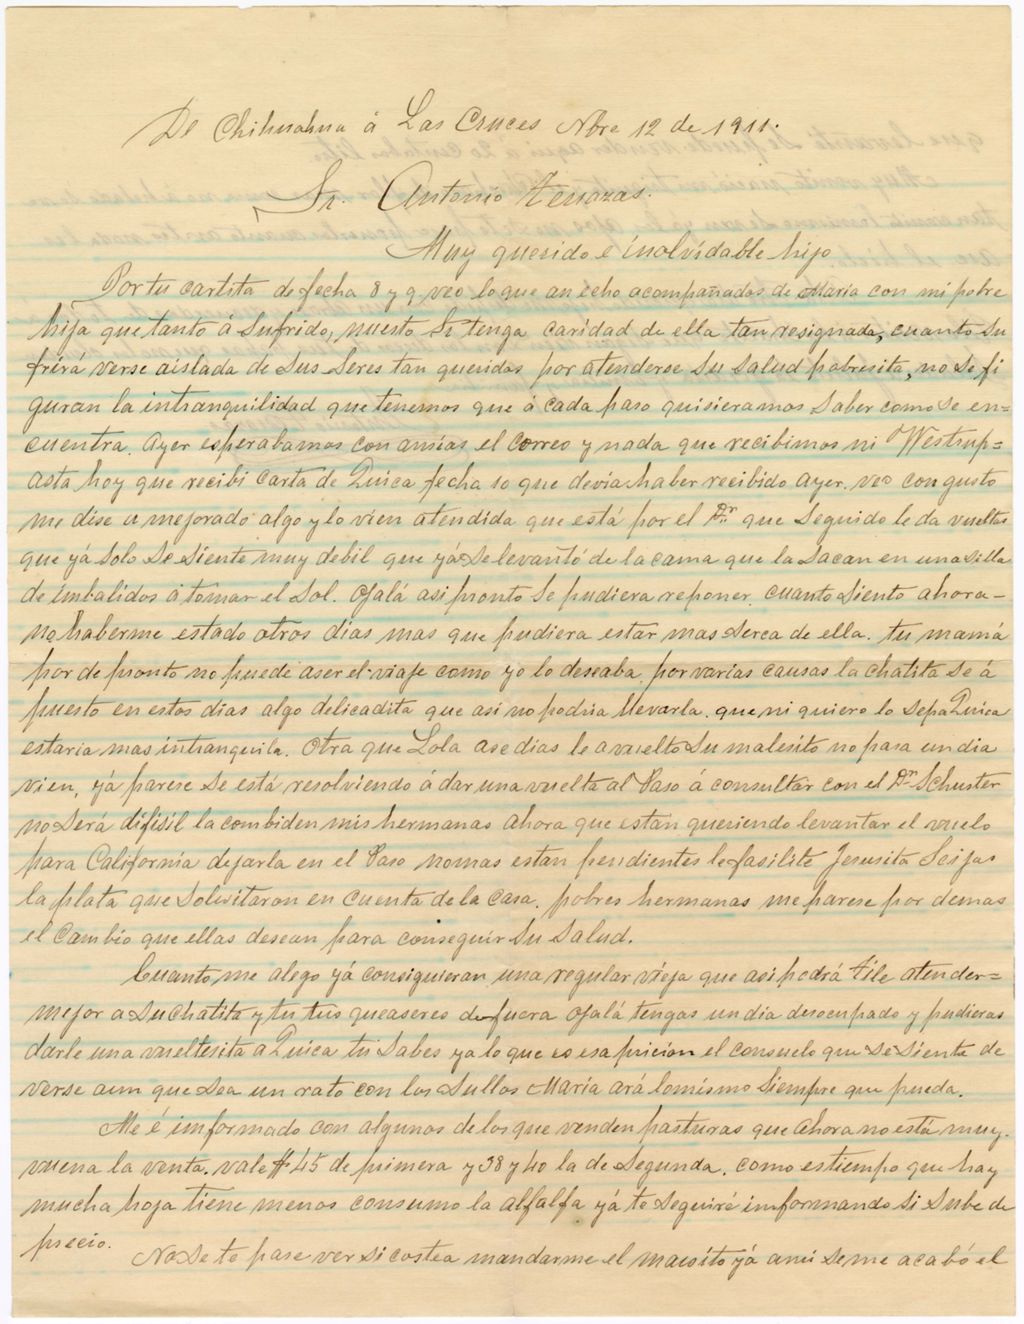 De Chihuahua á Las Cruces Nbre 12 de 1911.
Sr. Antonio Terrazas.
Muy querido e inolvidable hijo
Por tu cartita de fecha 8 y 9 veo lo que an echo acompañados de Maria con mi pobre
hija que tanto á sufrido, nuestro Sr tenga caridad de ella tan resignada, cuanto su
frirá verse aislada de sus seres tan queridos por atenderse su salud pobresita, no se fi
guran la intranquilidad que tenemos que á cada paso quisieramos saber como se en=
cuentra. Ayer esperabamos con ansias el correo y nada que recibimos ni Westrup=
asta hoy que recibi carta de Quica fecha 10 que devia haber recibido ayer. veo con gusto
me dise a mejorado algo y lo vien atendida que está por el Dr. que seguido le da vueltas
que yá solo se siente muy debil que yá se levantó de la cama que la sacan en una silla
de imbalidos á tomar el sol. Ojalá asi pronto se pudiera reponer. cuanto siento ahora-
no haberme estado otros dias mas que pudiera estar mas serca de ella. tu mamá
por de pronto no puede aser el viaje como yo lo deseaba, por varias causas la chatita se á
puesto en estos dias algo delicadita que asi no podria llevarla. que ni quiero lo sepa Quica
estaria mas intranquila. Otra que Lola ase dias le a vuelto su malesito no pasa un dia
vien, yá parese se está resolviendo á dar una vuelta al Paso á consultar con el Dr. Schuster
no será difisil la combiden mis hermanas ahora que estan queriendo levantar el vuelo
para California dejarla en el Paso nomas estan pendientes le fasilite Jesusita Seijas
la plata que solisitaron en cuenta de la casa. pobres hermanas me parese por demas
el cambio que ellas desean para conseguir su salud.
Cuanto me alegro yá consiguieran una regular vieja que asi podrá tile atender=
mejor a su chatito y tu tus queaseres de fuera ojalá tengas un dia desocupado y pudieras
darle una vueltesita a Quica tu sabes ya lo que es esa pricion el consuelo que se siente de
verse aun que sea un rato con los sullos Maria ará lo mismo siempre que pueda.
Me é imformado con algunos de los que venden pasturas que ahora no está muy
vuena la venta. vale $45 de primera y 38 y 40 la de segunda. como es tiempo que hay
mucha hoja tiene menos consumo la alfalfa yá te seguiré imformando si sube de
precio.
No se te pase ver si costea mandarme el maesito yá aqui se me acabó el